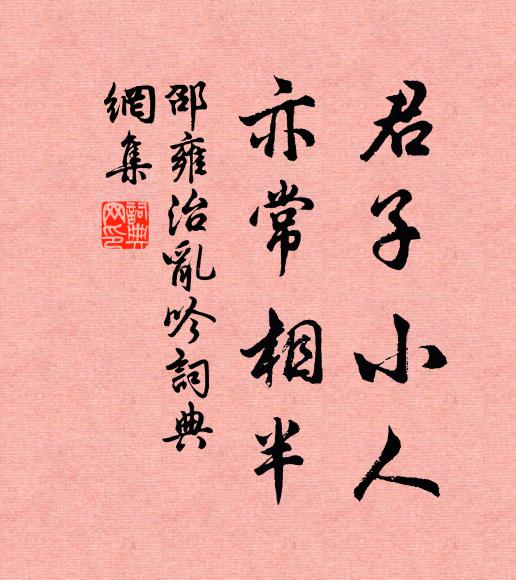 君子小人
亦常相半
邵雍治亂吟詞典
網集
詞典
网印